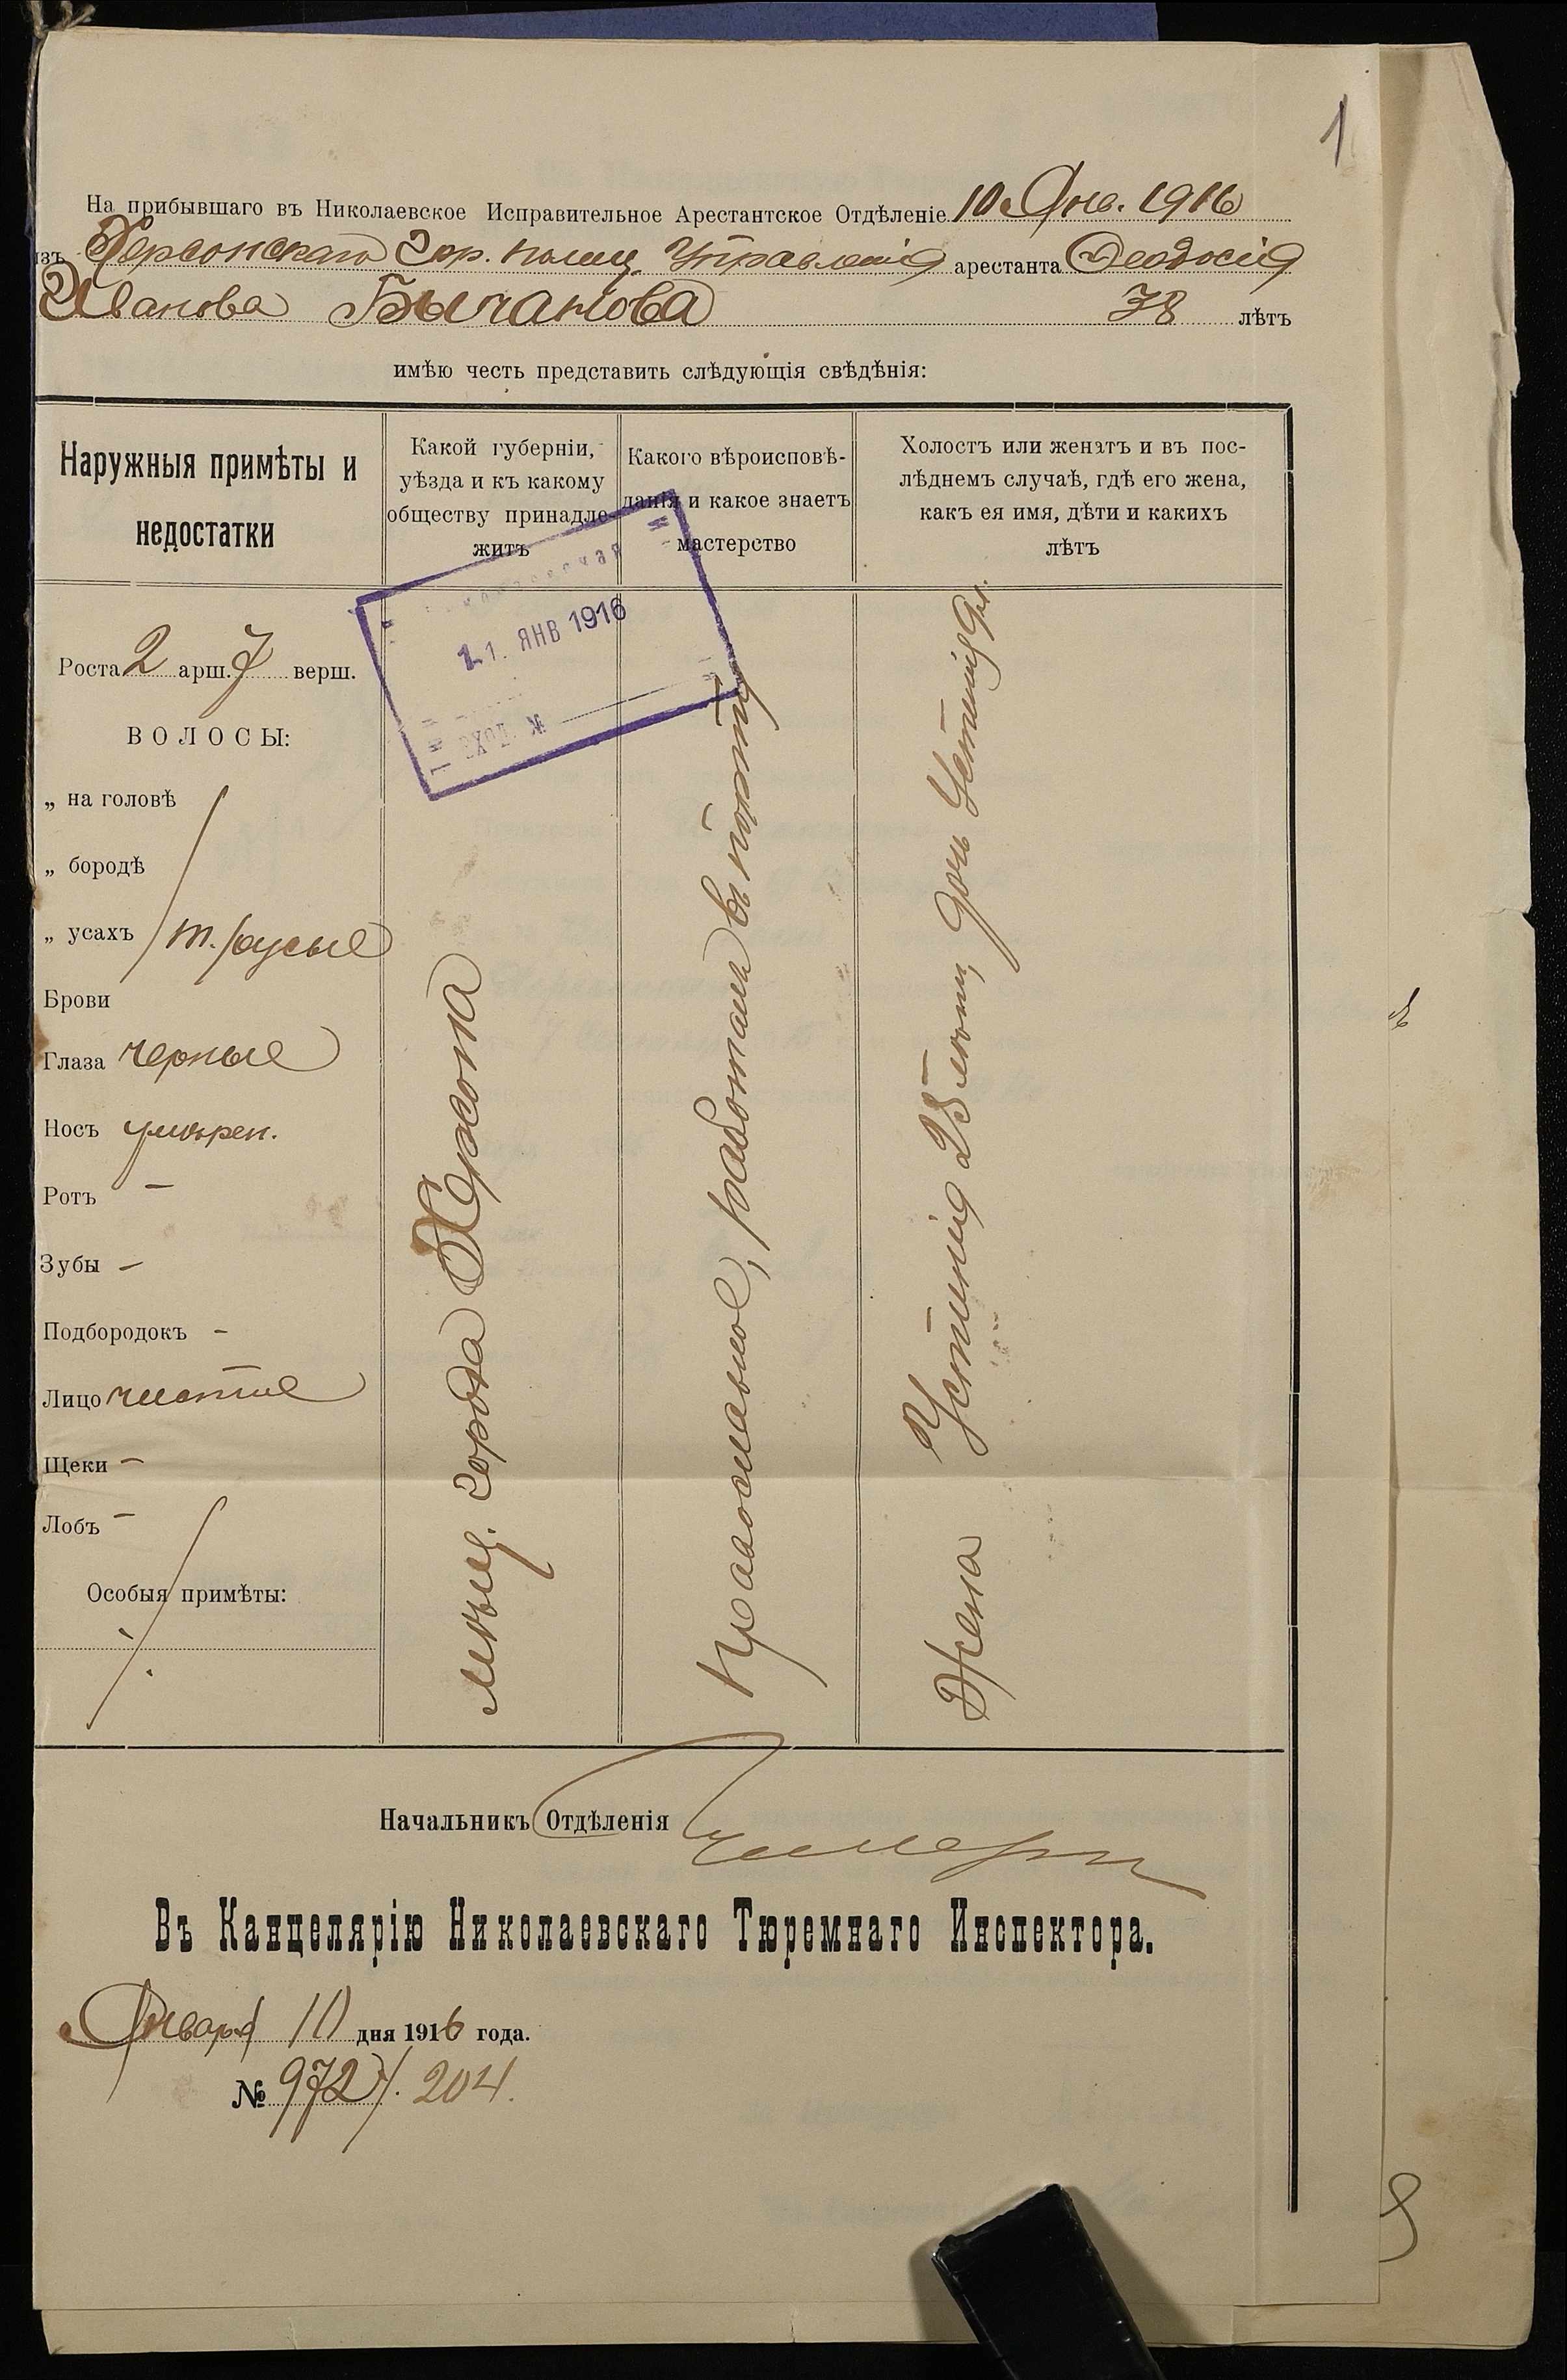 1
На прибывшаго въ Николаевское Исправительное Арестантское Отдѣленіе 10 Янв. 1916
изъ Херсонскаго Гор. полиц. Управленія арестанта Феодосія
Иванова Бычанова 38 лѣтъ
имѣю честь представить слѣдующія свѣдѣнія:
Наружныя примѣты и
недостатки
Какой губерніи,
уѣзда и къ какому
обществу принадле-
житъ
Какого вѣроисповѣ-
данія и какое знаетъ
мастерство
Холостъ или женатъ и въ пос-
лѣднемъ случаѣ, гдѣ его жена,
какъ ея имя, дѣти и какихъ
лѣтъ
11. ЯНВ 1916
Роста 2 арш. 7 верш.
ВОЛОСЫ:
„ на головѣ
„ бородѣ
„ усахъ т. русые
Брови
Глаза черные
Носъ умѣрен.
Ротъ —
Зубы —
Подбородокъ —
Лицо чистое
Щеки —
Лобъ —
Особыя примѣты:
мѣщ. города Херсона
Православное, работалъ въ порту
Жена Устинія 25 лѣтъ, дочь
Начальникъ Отдѣленія
Въ Канцелярію Николаевскаго Тюремнаго Инспектора.
Января 10 дня 1916 года.
№ 972 / 204.